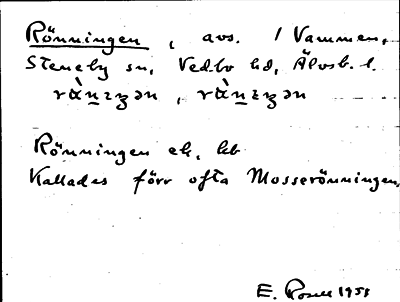 Rönningen, avs. / Vammen,
Steneby sn, Vedbo hd, Älvsb. l.
Rönningen ek, kb
Kallades förr ofta Mosserönningen,
E. Rosell 1951